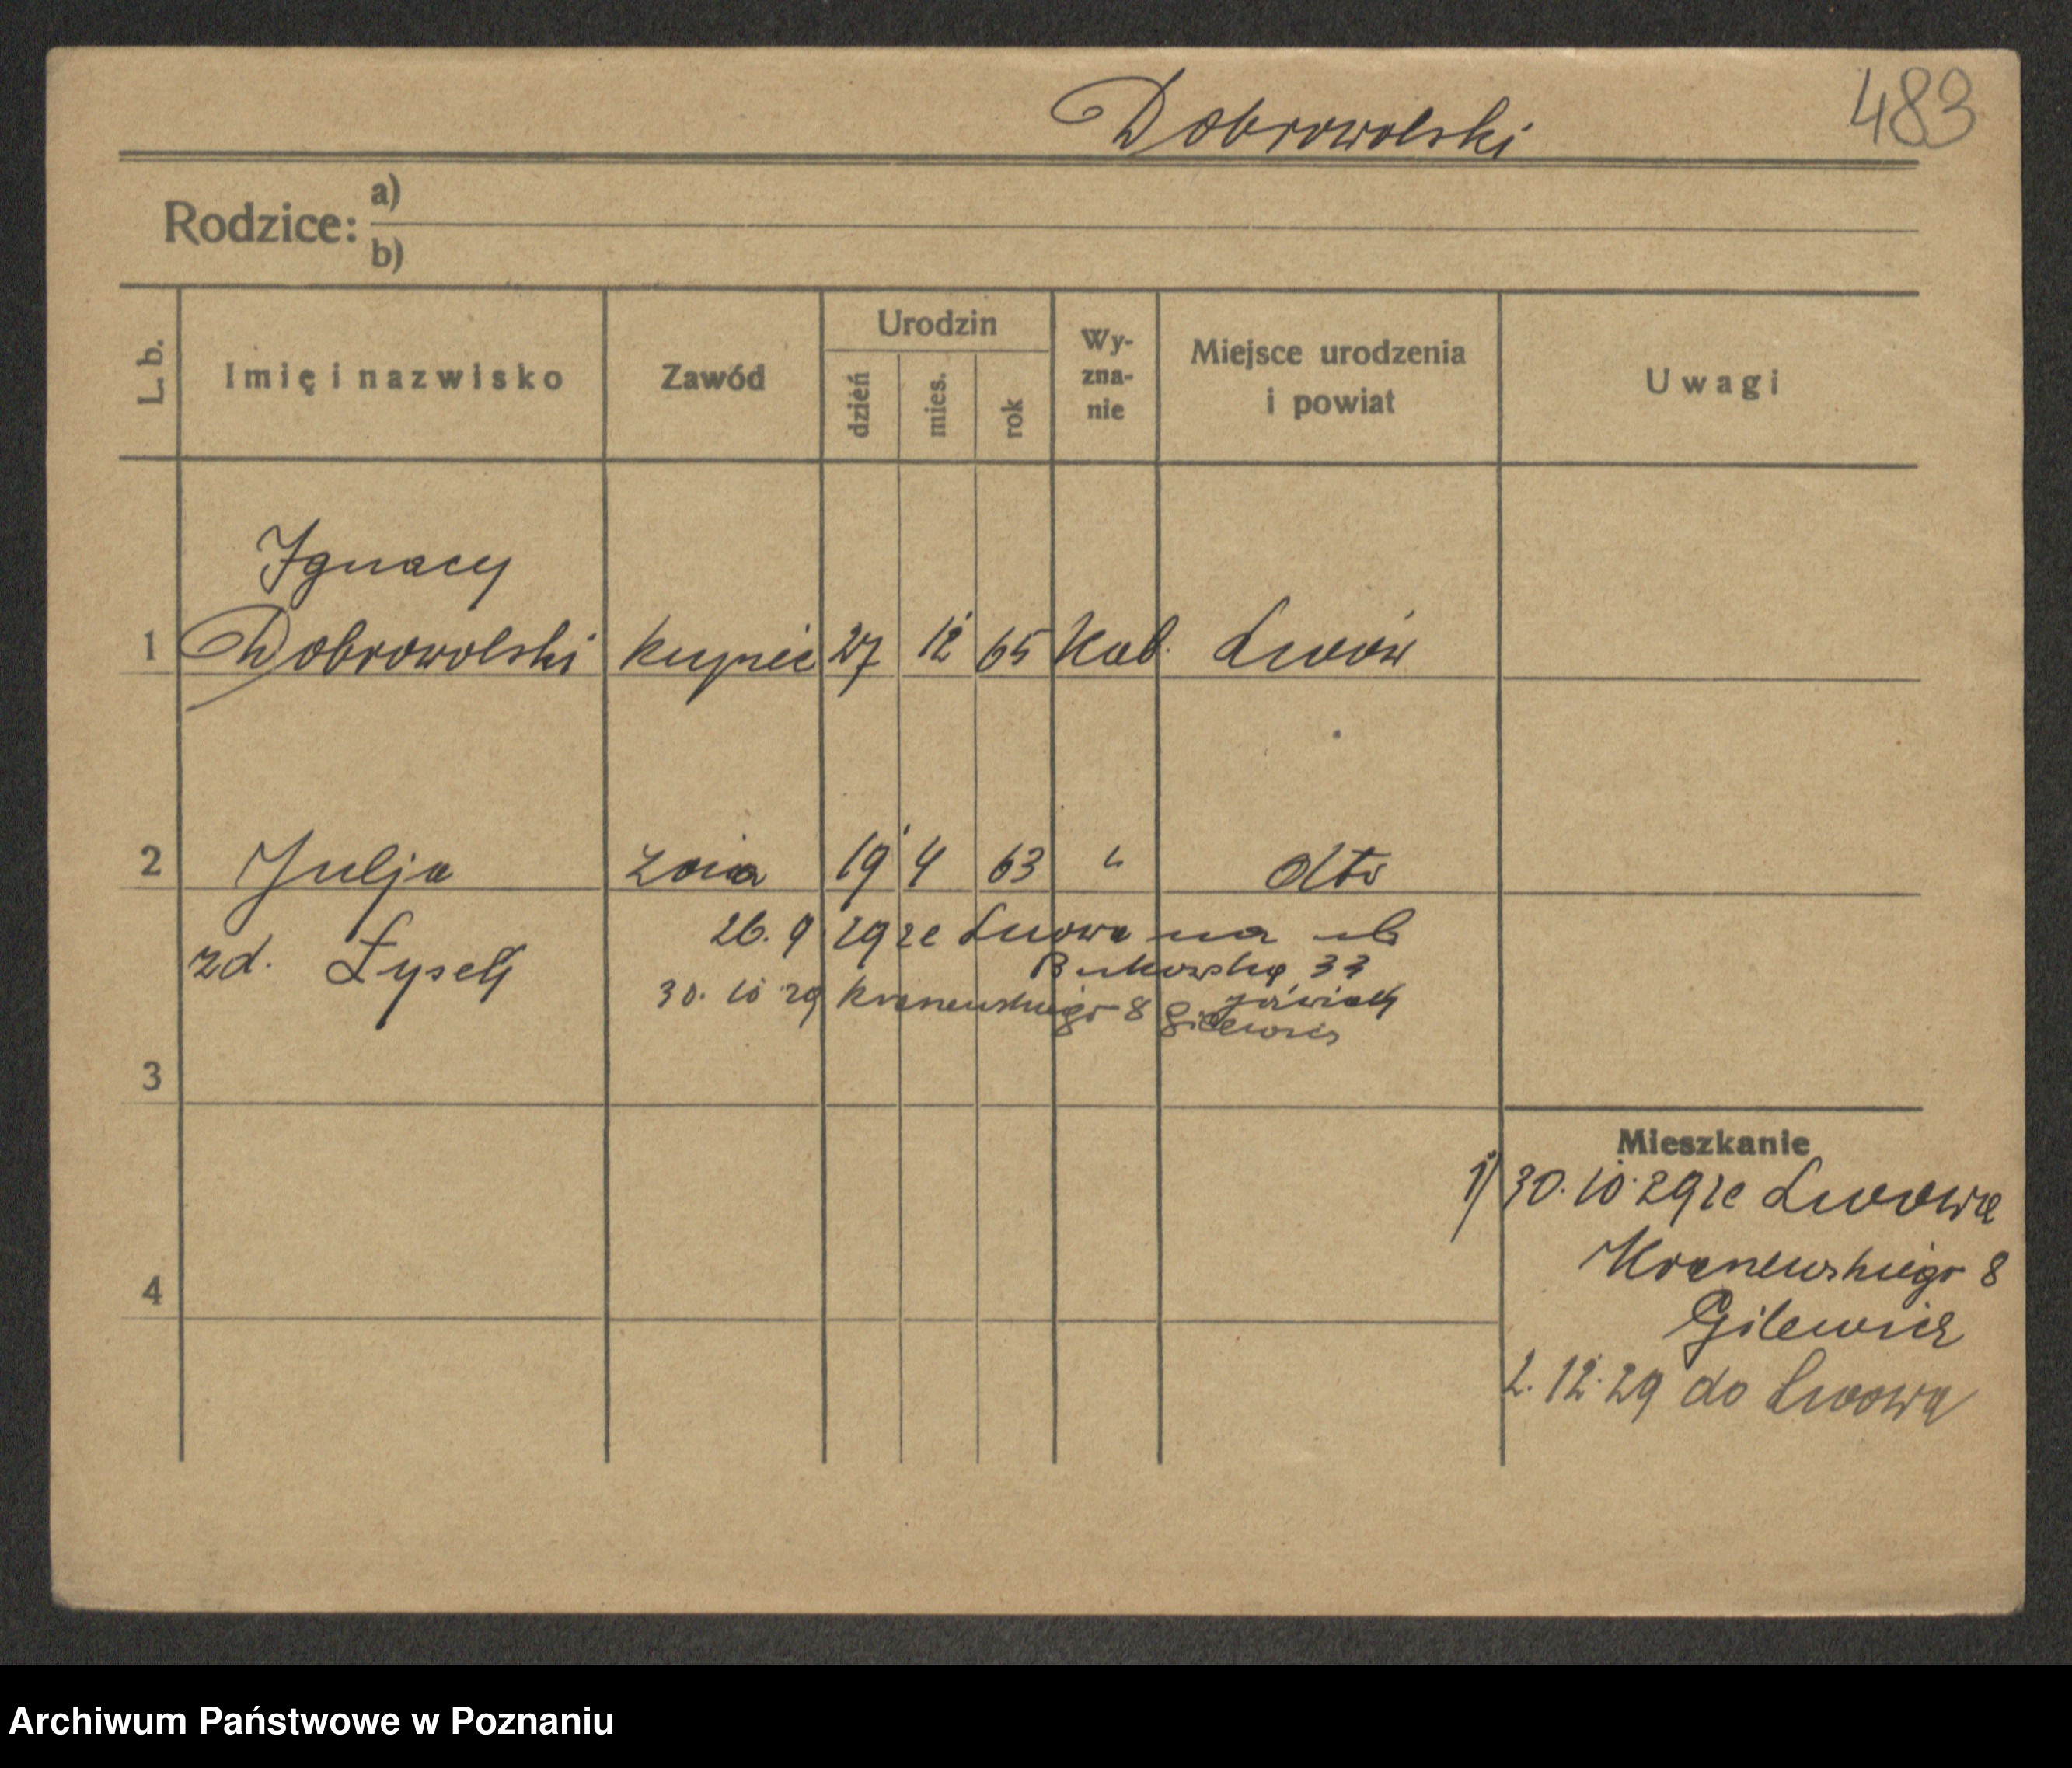 Dobrowolski
483
Rodzice: a)
b)
L. b.
Imię i nazwisko
Zawód
Urodzin
dzień
mies.
rok
Wy-
zna-
nie
Miejsce urodzenia
i powiat
Uwagi
Ignacy
1 Dobrowolski kupiec 27 12 65 Kat. Lwów
2 Julja żona 19 4 63 " dto
zd.
26. 9 29 ze Lwowa na ul
Bukowską 33
30. 10 29 Kranewskiego 8 Gilewicz
3
Mieszkanie
1) 30. 10. 29 ze Lwowa
Kranewskiego 8
Gilewicz
4
2. 12. 29 do Lwowa
Archiwum Państwowe w Poznaniu